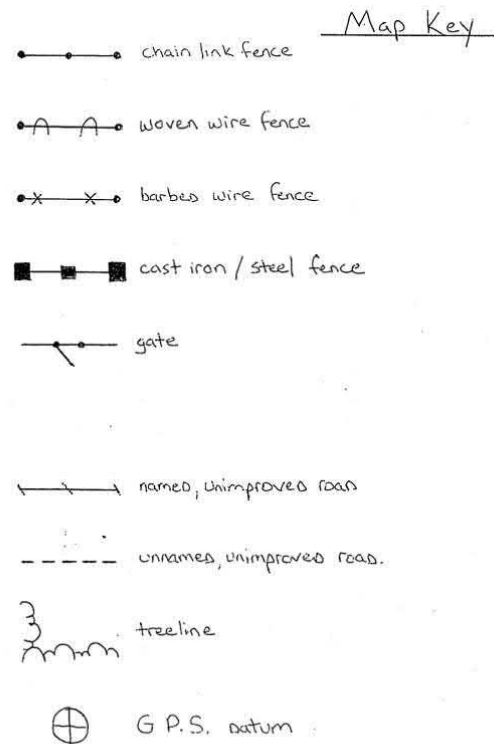 Map Key
chain link fence
woven wire fence
barbed wire fence
cast iron / steel fence
gate
named, unimproved road
unnamed, unimproved road.
treeline
G P.S. datum